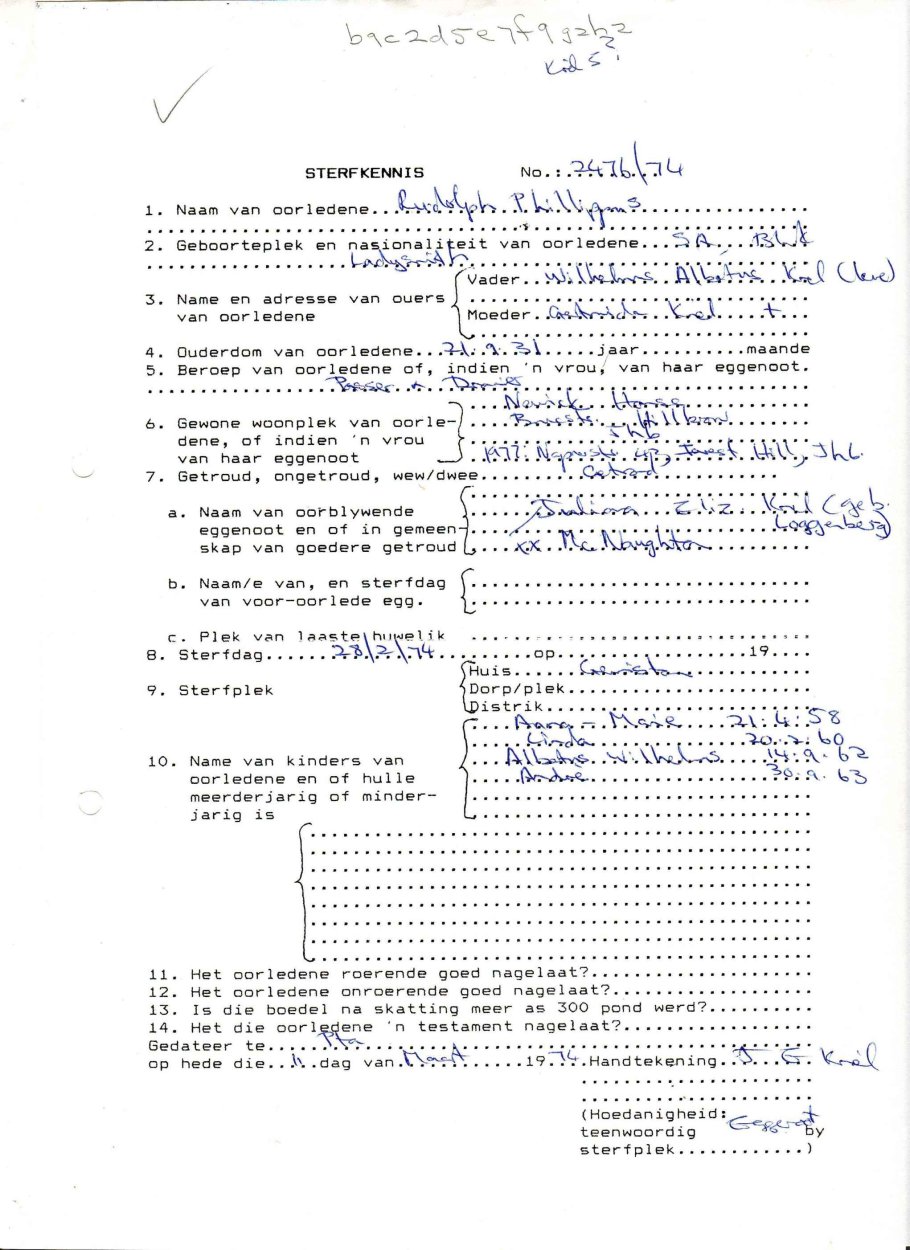 b9c2d5e7f9g2h2
?
STERFKENNIS No.: 2476/74
1. Naam van oorledene... Rudolph Phillippus
2. Geboorteplek en nasionaliteit van oorledene... SA.
Ladysmith
3. Name en adresse van ouers van oorledene
Vader... Wilhelmus Albertus
Moeder... +
4. Ouderdom van oorledene... 21.9.31 ...jaar...maande
5. Beroep van oorledene of, indien 'n vrou, van haar eggenoot.
6. Gewone woonplek van oorle-
dene, of indien 'n vrou
van haar eggenoot
Hillbrow
Jhb
1977: 42, Forest Hill, Jhb.
7. Getroud, ongetroud, wew/dwee... Getroud
a. Naam van oorblywende
eggenoot en of in gemeen-
skap van goedere getroud
Juliana Eliz (geb.
Loggenberg)
xx Mc Naughton
b. Naam/e van, en sterfdag
van voor-oorlede egg.
c. Plek van laaste huwelik
8. Sterfdag... 28/2/74 ...op...19...
9. Sterfplek
Huis... Germiston
Dorp/plek...
Distrik...
10. Name van kinders van
oorledene en of hulle
meerderjarig of minder-
jarig is
Marie 21.4.58
Linda 20.2.60
Albertus Wilhelmus 14.9.62
Andre 30.9.63
11. Het oorledene roerende goed nagelaat?...
12. Het oorledene onroerende goed nagelaat?...
13. Is die boedel na skatting meer as 300 pond werd?...
14. Het die oorledene 'n testament nagelaat?...
Gedateer te... Pta
op hede die... 11 .dag van Maart ...19 74 .Handtekening. J. E.
(Hoedanigheid:
teenwoordig Eggenoot by
sterfplek...)